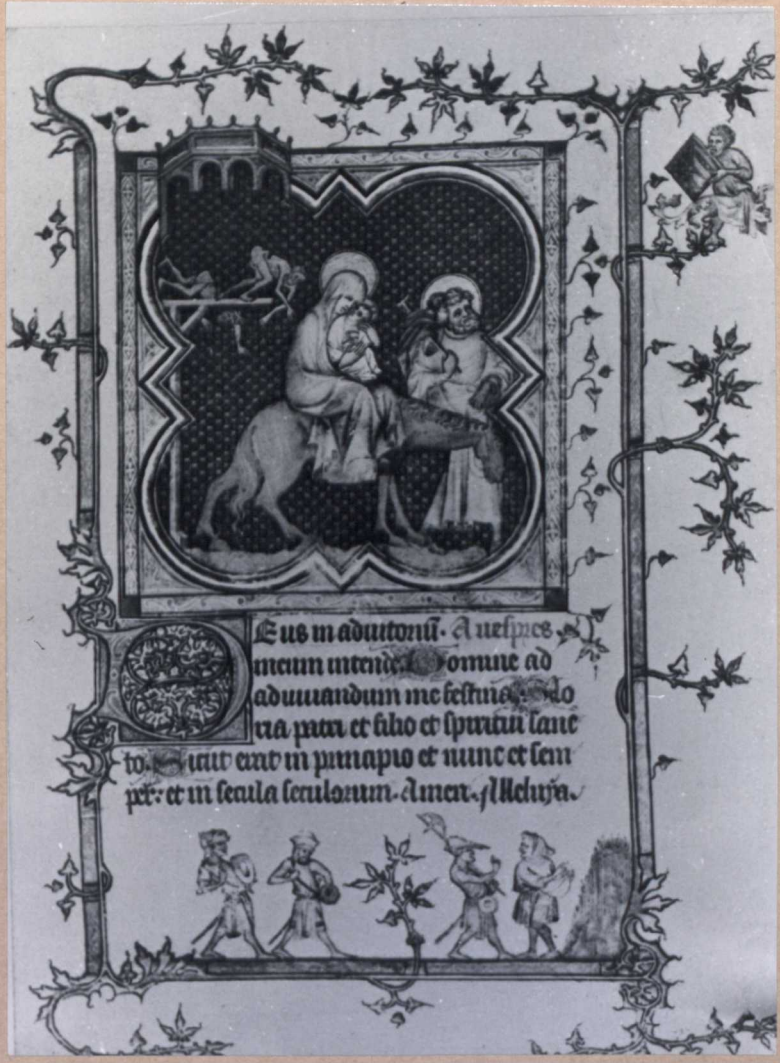 Deus in adiutoriū. A uespres
meum intende. Domine ad
adiuuandum me festina. Glo
ria patri et filio et spiritui sanc
to. Sicut erat in principio et nunc et sem
per: et in secula seculorum. Amen. Alleluya.